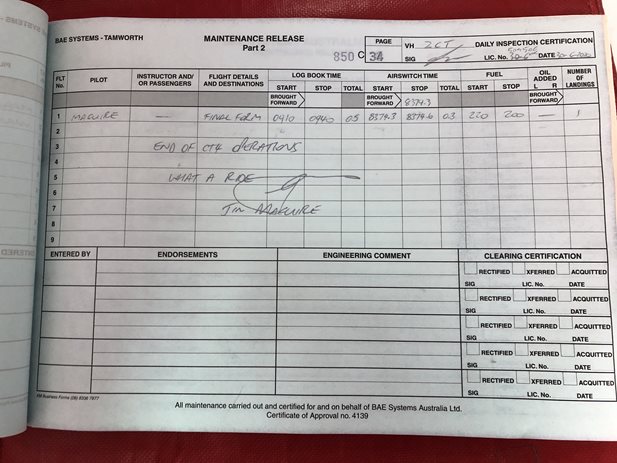 BAE SYSTEMS - TAMWORTH
MAINTENANCE RELEASE
Part 2
850 C
PAGE
34
VH ZCT
SIG
DAILY INSPECTION CERTIFICATION
LIC. No. DATE 30-6-2020
FLT No. PILOT INSTRUCTOR AND/ OR PASSENGERS FLIGHT DETAILS AND DESTINATIONS LOG BOOK TIME AIRSWITCH TIME FUEL OIL ADDED L R NUMBER OF LANDINGS
START STOP TOTAL START STOP TOTAL START STOP
BROUGHT FORWARD BROUGHT FORWARD 8379.3 BROUGHT FORWARD
1 MAGUIRE — FINAL FORM 0910 0940 0.5 8379.3 8379.6 0.3 220 200 — 1
2
3 END OF CT4 OPERATIONS
4
5 WHAT A RIDE
6
7 Tim MAGUIRE
8
9
ENTERED BY ENDORSEMENTS ENGINEERING COMMENT CLEARING CERTIFICATION
RECTIFIED XFERRED ACQUITTED
SIG LIC. No. DATE
RECTIFIED XFERRED ACQUITTED
SIG LIC. No. DATE
RECTIFIED XFERRED ACQUITTED
SIG LIC. No. DATE
RECTIFIED XFERRED ACQUITTED
SIG LIC. No. DATE
RECTIFIED XFERRED ACQUITTED
SIG LIC. No. DATE
Business Forms (08) 8336 7877
All maintenance carried out and certified for and on behalf of BAE Systems Australia Ltd.
Certificate of Approval no. 4139